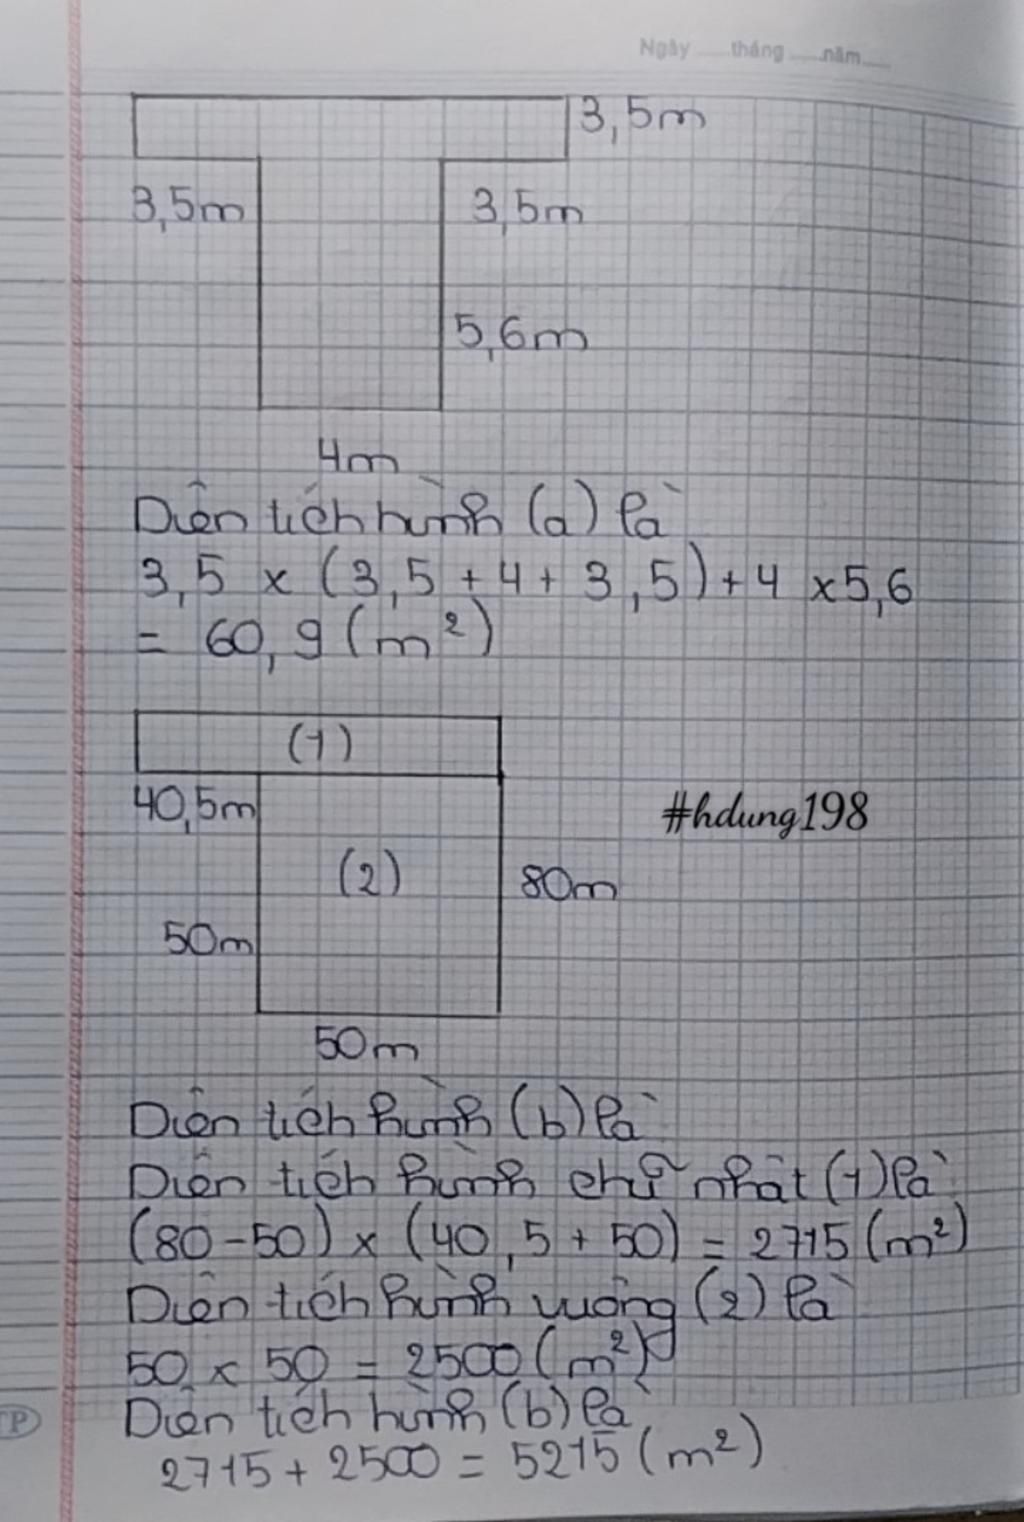 Ngày ......tháng ......năm......
3,5m
3,5m
3,5m
5,6m
4m
Diện tích hình (a) là
3,5 x (3,5 + 4 + 3,5) + 4 x 5,6
= 60,9 (m²)
(1)
40,5m
#hdung198
(2)
80m
50m
50m
Diện tích hình (b) là
Diện tích hình chữ nhật (1) là
(80 - 50) x (40,5 + 50) = 2715 (m²)
Diện tích hình vuông (2) là
50 x 50 = 2500 (m²)
TP
Diện tích hình (b) là
2715 + 2500 = 5215 (m²)